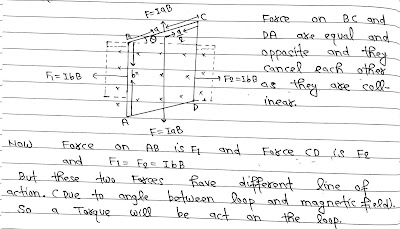 F=IaB
Force on BC and
DA are equal and
opposite and they
cancel each other
as they are coll-
inear.
B
C
θ
F1=IbB
b
F2=IbB
A
D
F=IaB
Now Force on AB is F1 and Force CD is F2
and F1= F2 = IbB
But these two Forces have different line of
action. (Due to angle between loop and magnetic field).
So a Torque will be act on the loop.